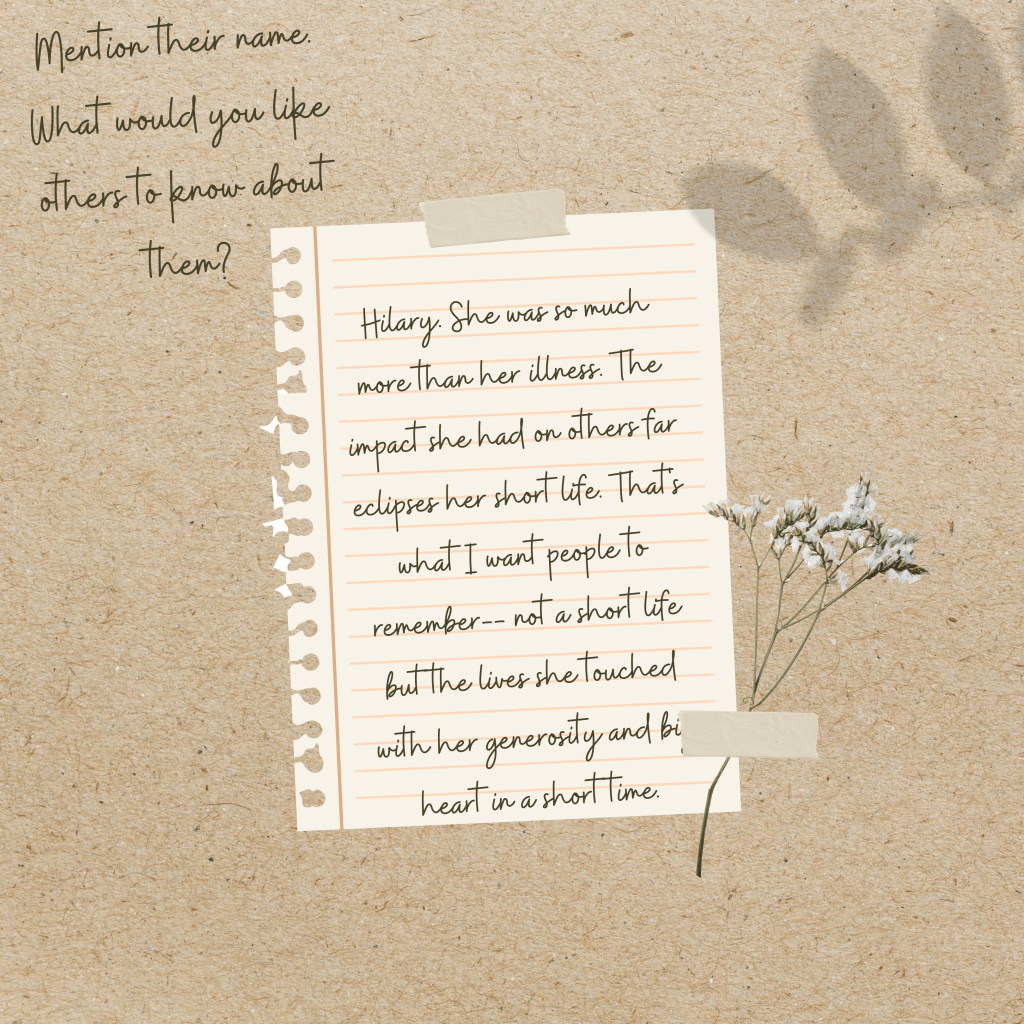 Mention their name.
What would you like
others to know about
them?
Hilary. She was so much
more than her illness. The
impact she had on others far
eclipses her short life. That's
what I want people to
remember-- not a short life
but the lives she touched
with her generosity and bi
heart in a short time.